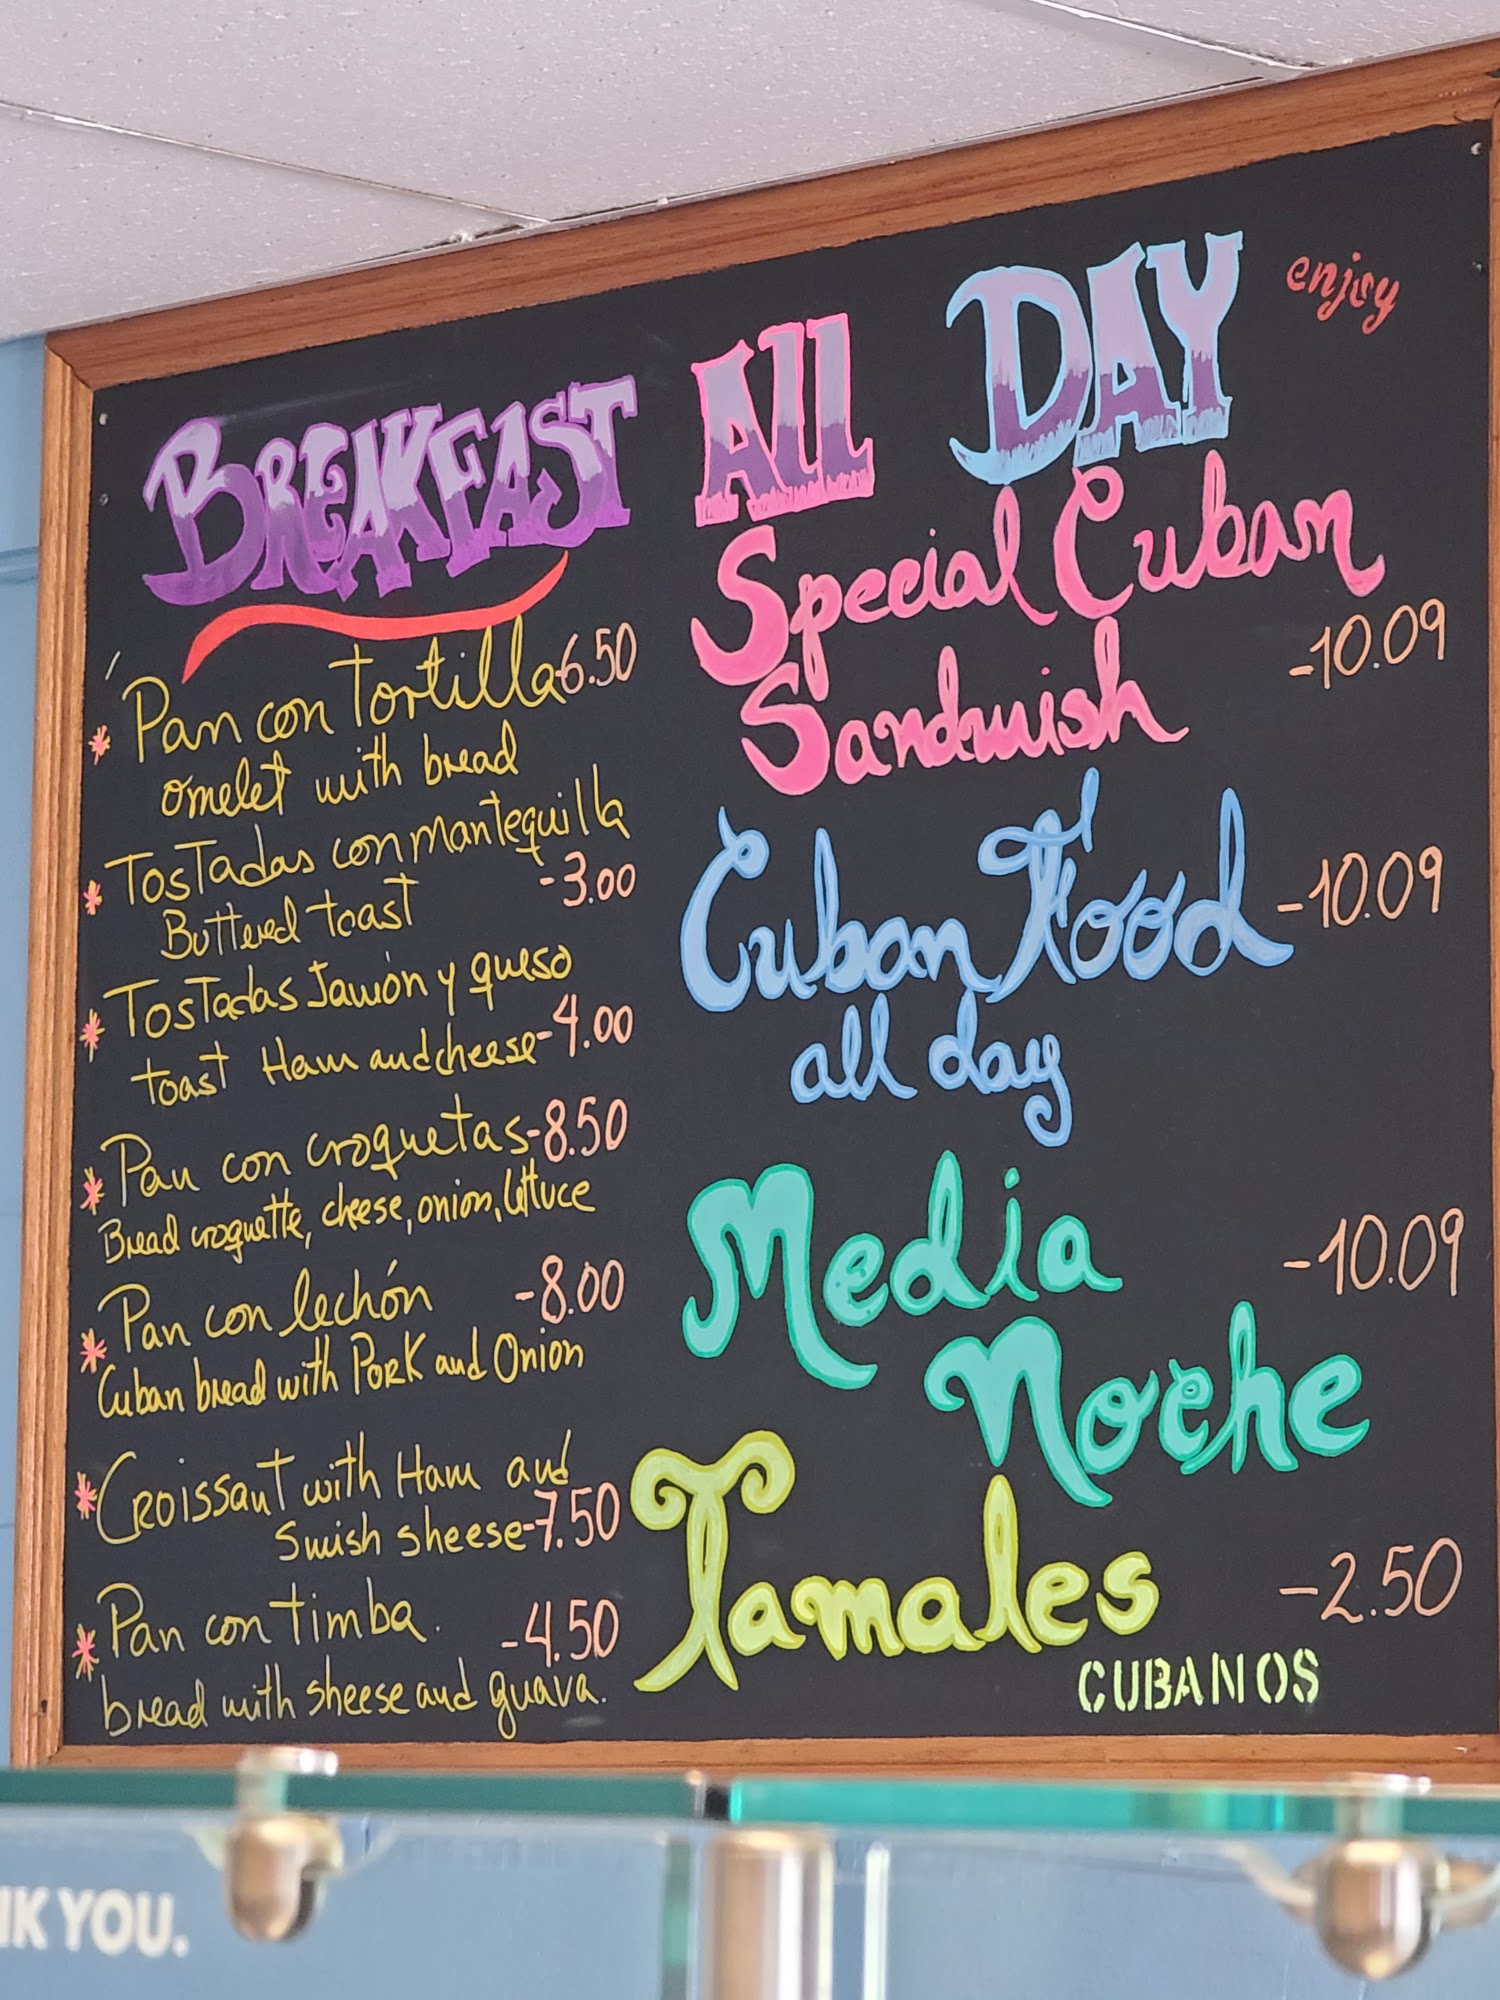 BREAKFAST All DAY
enjoy
* Pan con Tortilla -6.50
omelet with bread
* Tostadas con mantequilla
Buttered toast -3.00
* Tostadas Jamón y queso
toast Ham and cheese -4.00
* Pan con croquetas -8.50
Bread croquette, cheese, onion, lettuce
* Pan con lechón -8.00
Cuban bread with Pork and Onion
* Croissant with Ham and
Swish sheese -7.50
* Pan con timba. -4.50
bread with sheese and guava.
Special Cuban
Sandwish -10.09
Cuban Food -10.09
all day
Media -10.09
Noche
Tamales -2.50
CUBANOS
YOU.